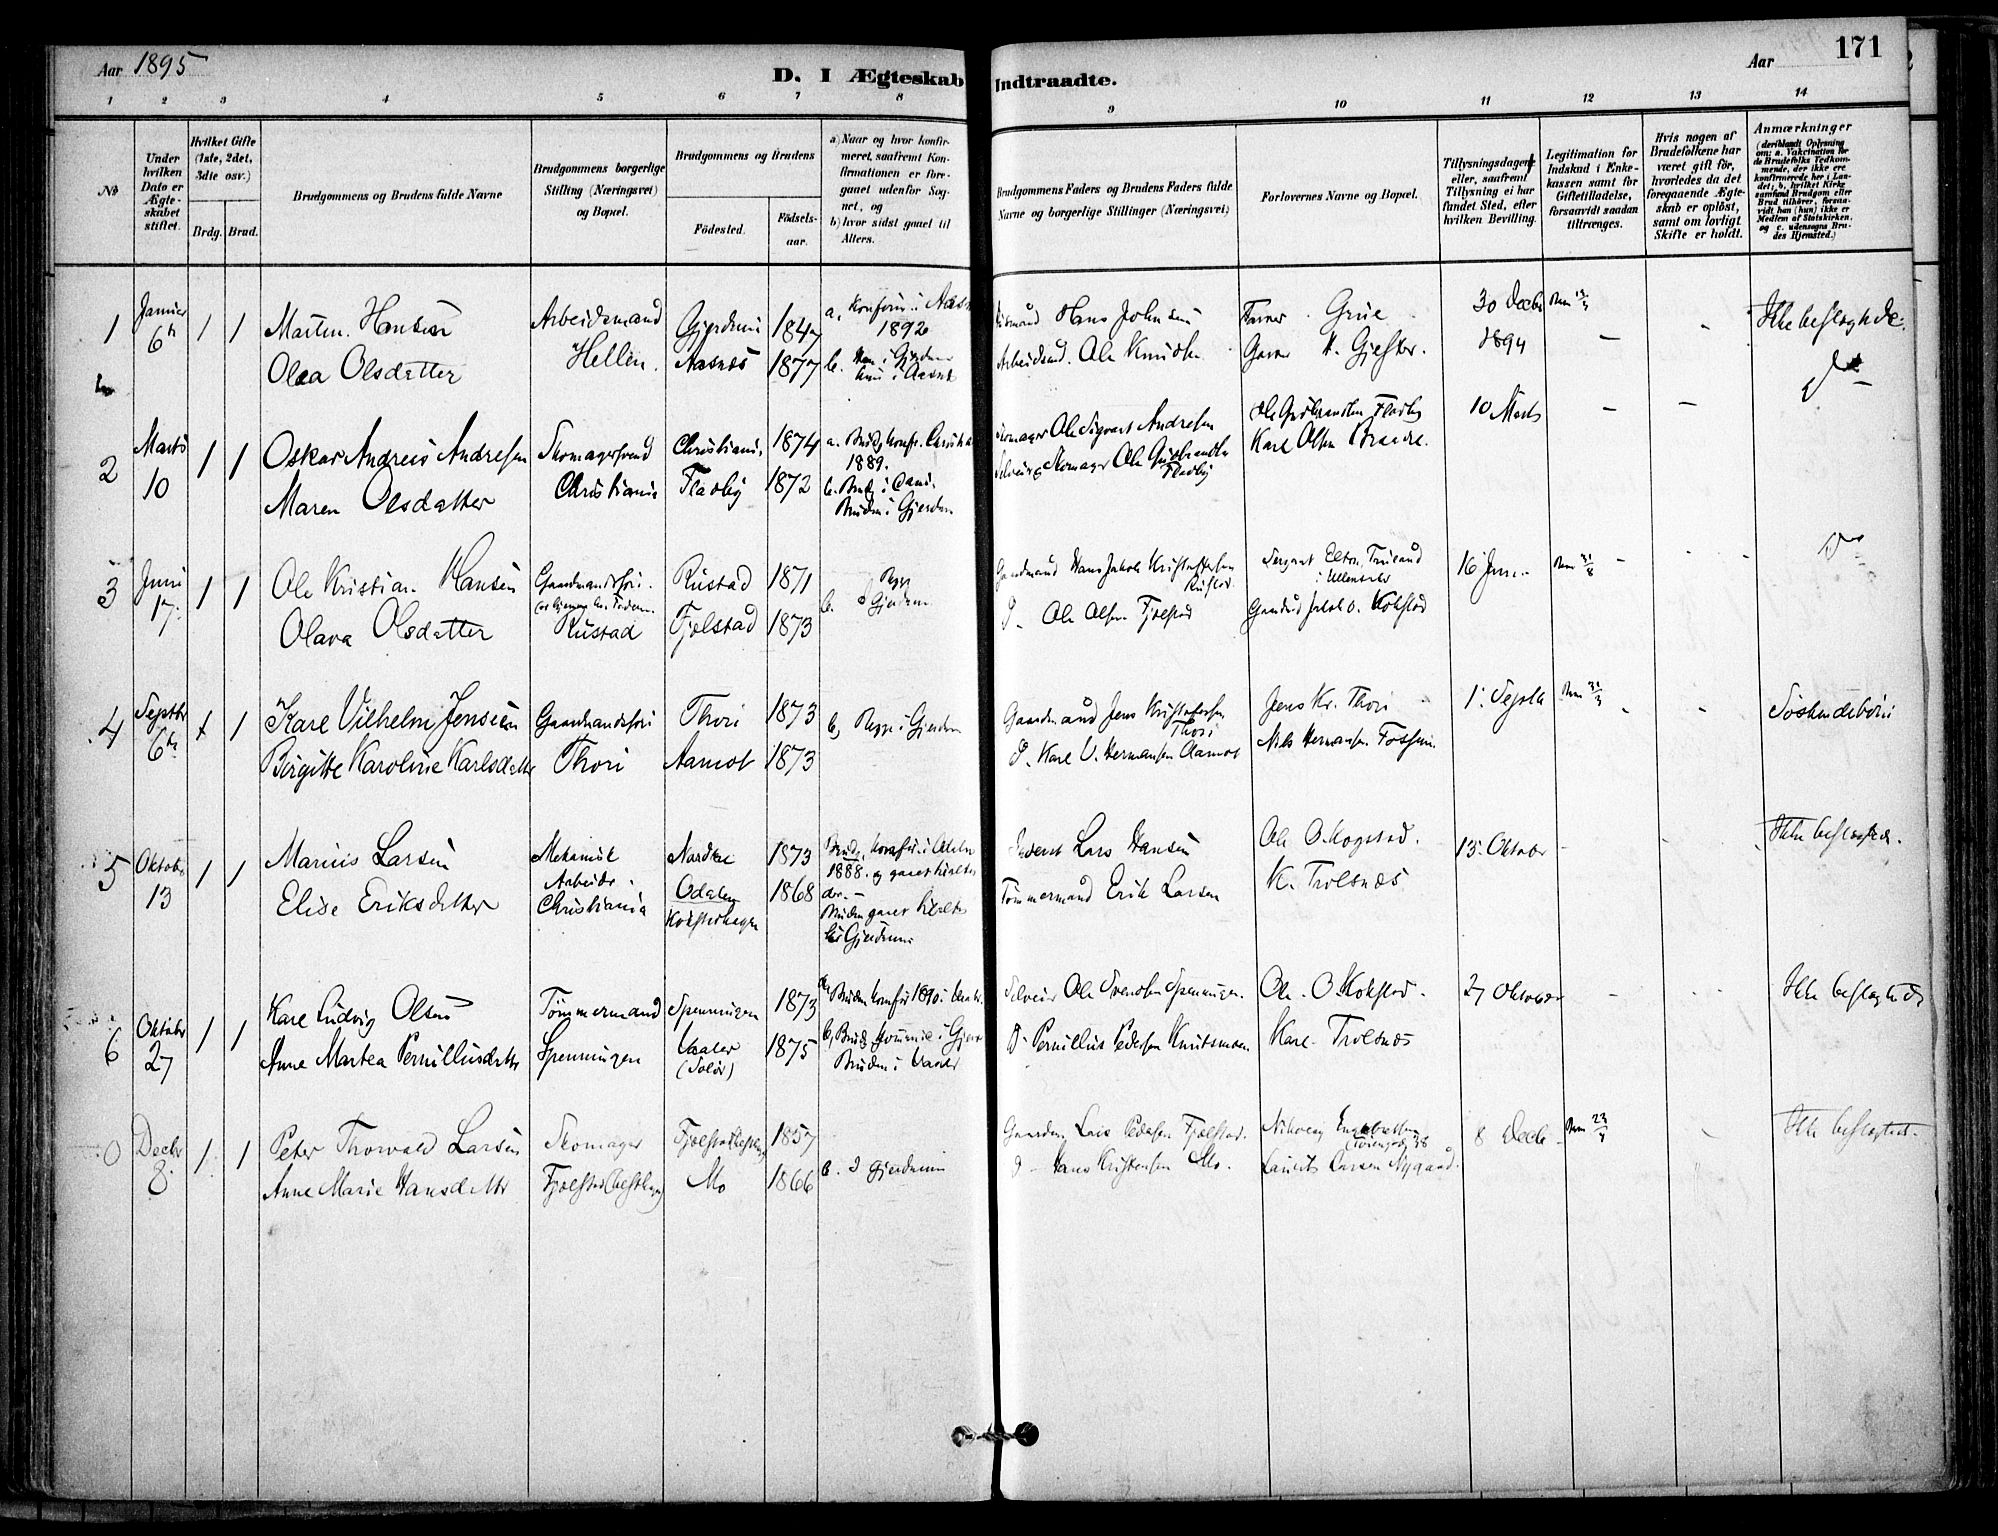 Aar 1895
D. I Ægteskab Indtraadte.
Aar
171
1 2 3 4 5 6 7 8 9 10 11 12 13 14
No
Under hvilken Dato er Ægteskabet stiftet.
Hvilket Gifte (1ste, 2det, 3dte osv.)
Brdg. Brud.
Brudgommens og Brudens fulde Navne
Brudgommens borgerlige Stilling (Næringsvei) og Bopæl.
Brudgommens og Brudens
Födested.
Födselsaar.
a) Naar og hvor konfirmeret, saafremt Konfirmationen er foregaaet udenfor Sognet, og
b) hvor sidst gaaet til Alters.
Brudgommens Faders og Brudens Faders fulde Navne og borgerlige Stillinger (Næringsvei)
Forlovernes Navne og Bopæl.
Tillysningsdagene eller, saafremt Tillysning ei har fundet Sted, efter hvilken Bevilling.
Legitimation for Indskud i Enkekassen samt for Giftetilladelse, forsaavidt saadan tiltrænges.
Hvis nogen af Brudefolkene har været gift för, hvorledes da det foregaaende Ægteskab er oplöst, samt om lovligt Skifte er holdt.
Anmærkninger
(deriblandt Oplysning om: a. Vakcination for de Brudefolks Vedkommende, der ikke ere konfirmerede her i Landet; b. hvilket Kirkesamfund Brudgom eller Brud tilhörer, forsaavidt han (hun) ikke er Medlem af Statskirken, og c. udensogns Brudes Hjemsted.)
1 Januar 6te 1 1 Marten Hansen Arbeidsmand Gjerdrum 1847 a, Konfirm. i Aasnes 1892 Hans Johnsen Grue 30 Decbr Ikke beslægtede.
Olea Olsdatter Hellen. Aasnes 1877 b. Ham i Gjerdrum hun i Aasnes Arbeidsmd. Ole Knudsen 1894
2 Marts 10 1 1 Oskar Andreas Andresen Skomagersvend Christiania, 1874 a. Brudg. konfr. Christiania 1889. Skomager Ole Sigvart Andresen Ole Gulbrandsen Fladby 10 Marts
Maren Olsdatter Christiania Fladby 1872 b. Brudg. i Bruden i Gjerdrum Selveier & Skomager Ole Gulbrandsen Fladby Karl Olsen
3 Juni 17. 1 1 Ole Kristian Hansen Gaardmandssøn. Rustad 1871 b. Begge i Gjerdrum Gaardmand Hans Jakob Kristoffersen Rustad Sergeant Trulsrud i Ullensaker 16 Juni
Olava Olsdatter Rustad Fjelstad 1873 D. Ole Olsen Fjelstad Gaardmd Jakob O. Kokstad
4 Septbr 6te 1 1 Karl Vilhelm Jensen Gaardmandssøn Thori 1873 b, Begge i Gjerdrum Gaardmand Jens Kristoffersen Thori Jens Kr. Thori 1. Septbr Søskendebørn
Birgitte Karoline Karlsdatter Thori Aamot 1873 D. Karl V. Hermansen Aamot Nils Hermansen Fossum.
5 Oktober 13 1 1 Marius Larsen Mekanisk Arbeider. Nordre Odalen 1873 Brudg. konfir. i Odalen 1888. og gaaet til alters der. Lars Hansen Ole O. Kogstad. 13. Oktober Ikke beslægtede.
Elise Eriksdatter Christiania Kokstadhagen 1868 Bruden gaaet til alters her Gjerdrum Tømmermand Erik Larsen K. Trolsnæs
6 Oktober 27 1 1 Karl Ludvig Olsen Tømmermand Spenningen 1873 a, Bruden konfir 1890 i Vaaler. Selveier Ole Svendsen Spenningen. Ole O. Kokstad. 27 Oktober Ikke beslægtede
Anne Martea Pernillusdatter Spenningen Vaaler (Solør) 1875 b, Brudgommen i Gjerdr Bruden i Vaaler D. Pernillus Pedersen Knutsmoen Karl Trolsnæs
Decbr 8. 1 1 Peter Thorvald Larsen Skomager 1857 b. I Gjerdrum Gaardm. Lars Pedersen Fjelstad. 8 Decbr Ikke beslægtet.
Anne Marie Hansdatter Mo 1866 D Hans Kristensen Mo. Laurits Larsen Nygaard.